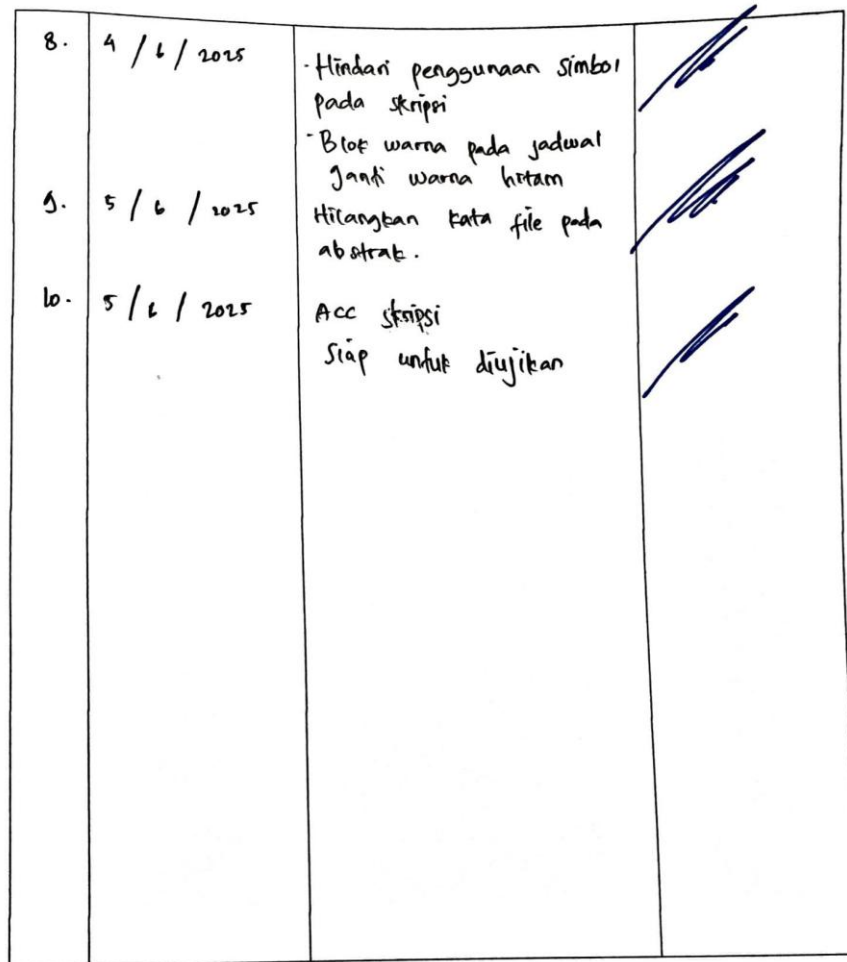 8. 4 / 6 / 2025 - Hindari penggunaan simbol
pada skripsi
- Blok warna pada jadwal
ganti warna hitam
9. 5 / 6 / 2025 Hilangkan kata file pada
abstrak.
10. 5 / 6 / 2025 Acc skripsi
Siap untuk diujikan